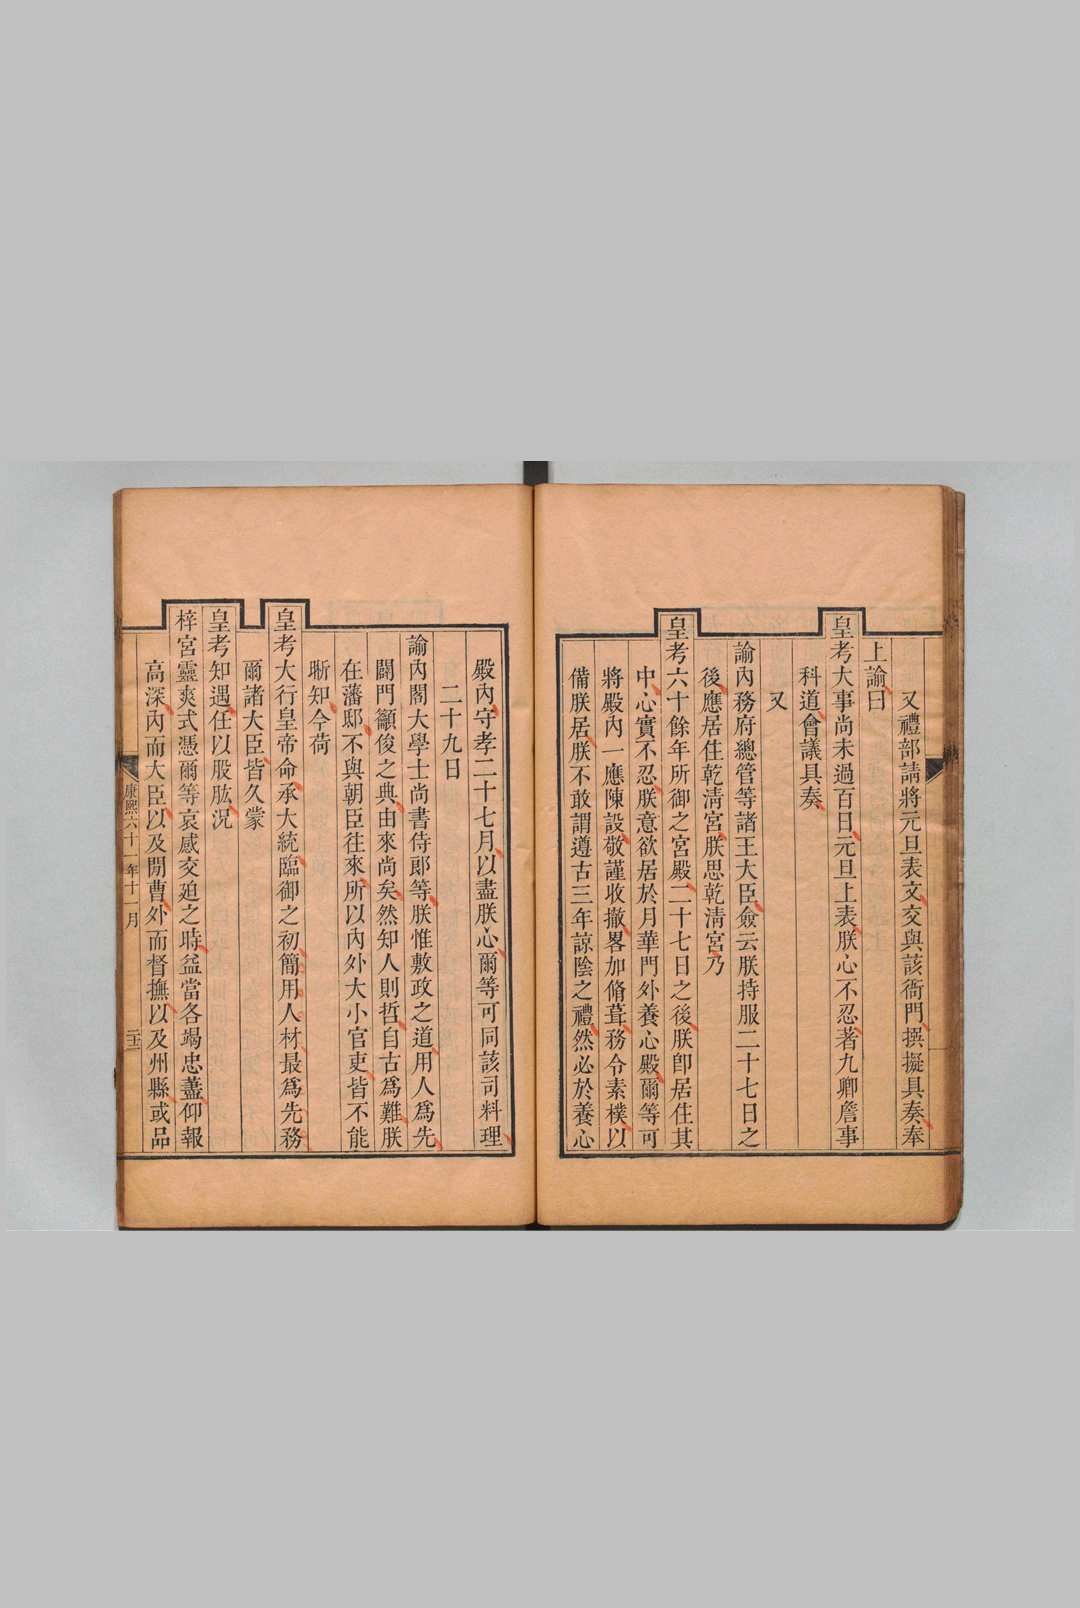 又禮部請將元旦表文交與該衙門撰擬具奏奉
上諭曰
皇考大事尚未過百日元旦上表朕心不忍著九卿詹事
科道會議具奏
又
諭內務府總管等諸王大臣僉云朕持服二十七日之
後應居住乾淸宮朕思乾淸宮乃
皇考六十餘年所御之宮殿二十七日之後朕卽居住其
中心實不忍朕意欲居於月華門外養心殿爾等可
將殿內一應陳設敬謹收撤畧加脩葺務令素樸以
備朕居朕不敢謂遵古三年諒陰之禮然必於養心
殿內守孝二十七月以盡朕心爾等可同該司料理
二十九日
諭內閣大學士尚書侍郎等朕惟敷政之道用人爲先
闢門籲俊之典由來尚矣然知人則哲自古爲難朕
在藩邸不與朝臣往來所以內外大小官吏皆不能
晰知今荷
皇考大行皇帝命承大統臨御之初簡用人材最爲先務
爾諸大臣皆久蒙
皇考知遇任以股肱況
梓宮靈爽式憑爾等哀慼交廹之時益當各竭忠藎仰報
高深內而大臣以及閒曹外而督撫以及州縣或品
康熙六十一年十一月